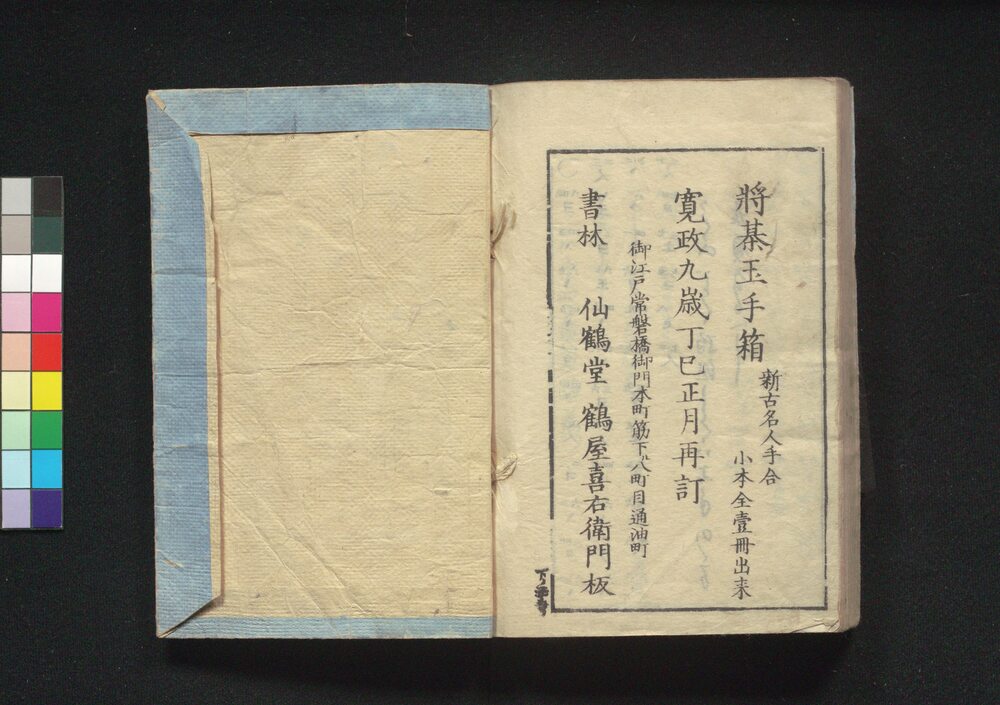 將棊玉手箱
新古名人手合
小本全壹冊出来
寛政九歳丁巳正月再訂
御江戸常磐橋御門本町筋下ル八町目通油町
書林　仙鶴堂　鶴屋喜右衛門板